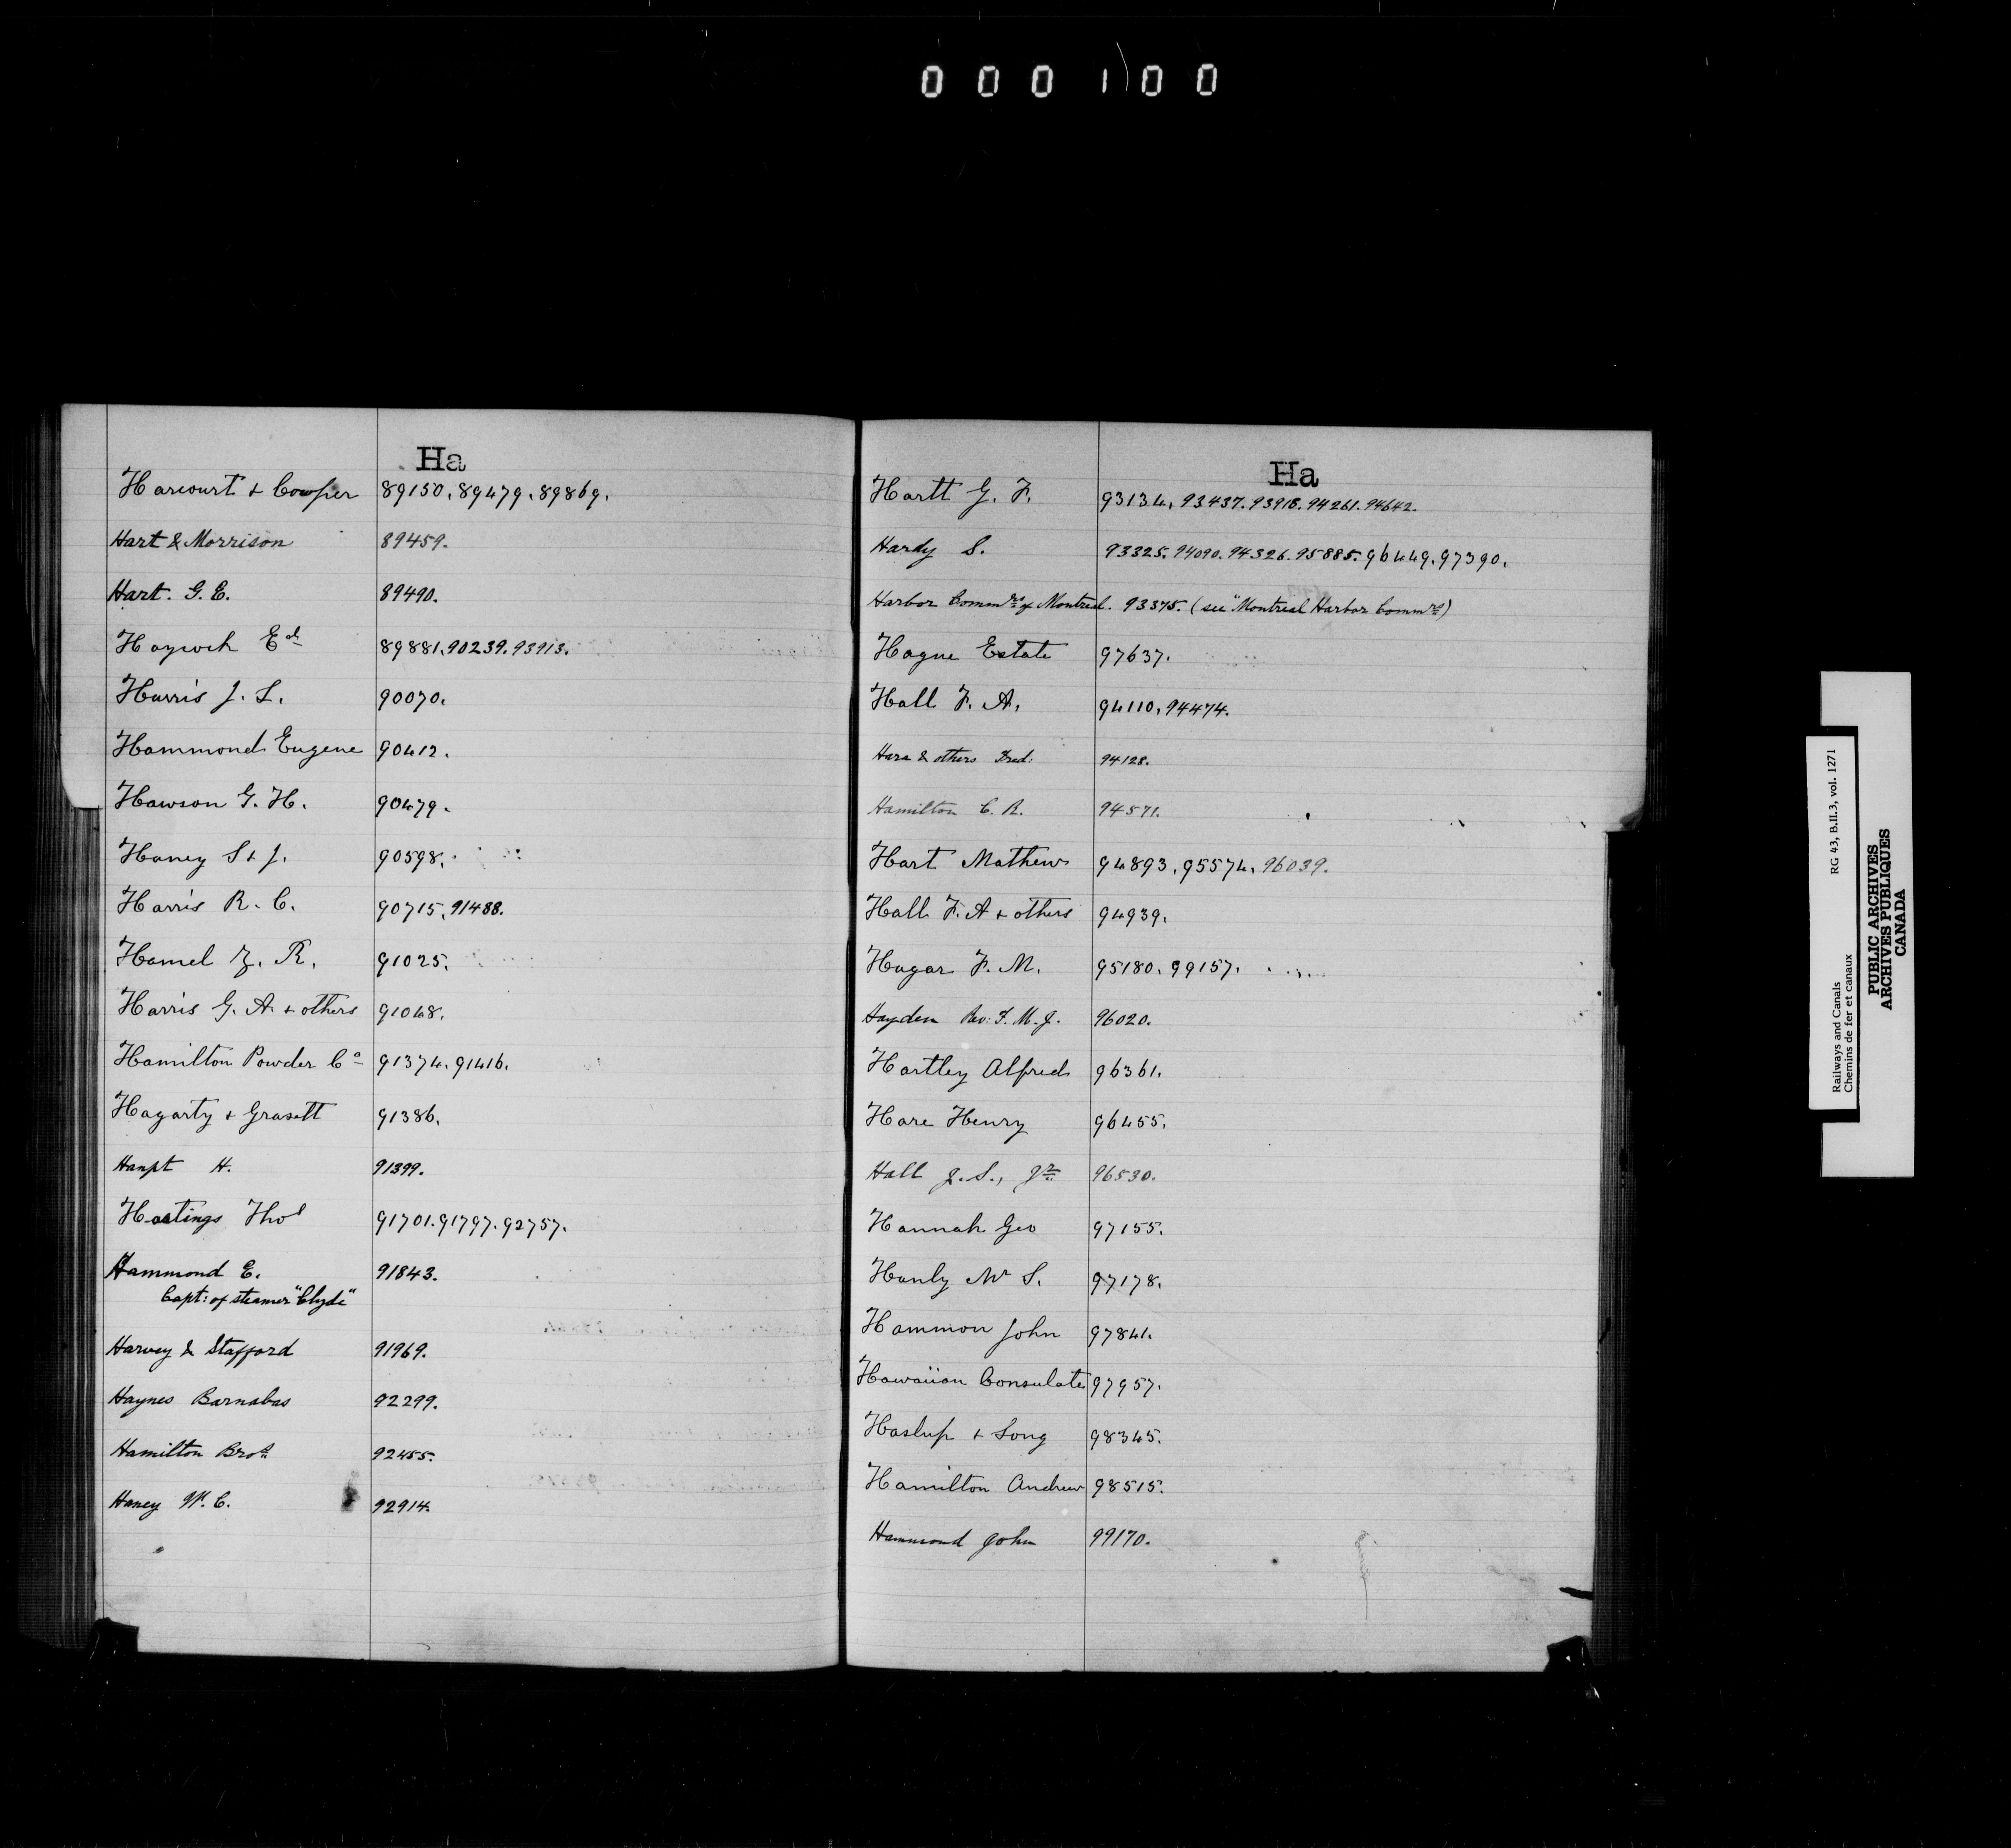 000100
Ha
Harcourt & Cowper 89150, 89479, 89869.
Hart & Morrison 89459.
Hart. G. E. 89490.
Haycock Ed 89881, 90239. 93913.
Harris J. L. 90070.
Hammond Eugene 90412.
Hawson G. H. 90479.
Haney S & J. 90598.
Harris R. C. 90715, 91488.
Hamel Z. R. 91025.
Harris G. A. & others 91048.
Hamilton Powder Co 91374, 91416.
Hagarty & Grasett 91386.
Haupt H. 91399.
Hastings Thos 91701. 91797. 92757.
Hammond E. 91843.
Capt: of steamer "Clyde"
Harvey & Stafford 91969.
Haynes Barnabas 92299.
Hamilton Bros. 92455.
Haney W. C. 92914.
Ha
Hartt G. F. 93134, 93437. 93918. 94261. 94642.
Hardy S. 93325. 94090. 94326. 95885. 96449, 97390.
Harbor Commrs of Montreal. 93375. (see "Montreal Harbor Commrs)
Hague Estate 97637.
Hall F. A. 94110, 94474.
Hara & others Fred: 94128.
Hamilton C. R. 94571.
Hart Mathew 94893, 95574, 96039.
Hall F. A & others 94939.
Hagar F. M. 95180, 99157.
Hayden Rev: F. M. J. 96020.
Hartley Alfred 96361.
Hare Henry 96455.
Hall J. S., Jr. 96530.
Hannah Geo 97155.
Hanly Mr S. 97178.
Hammon John 97841.
Hawaiian Consulate 97957.
Haslup & Long 98345.
Hamilton Andrew 98515.
Hammond John 99170.
Railways and Canals RG 43, B.II.3, vol. 1271
Chemins de fer et canaux
PUBLIC ARCHIVES
ARCHIVES PUBLIQUES
CANADA